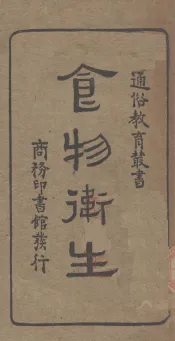 通俗教育叢書
食物衛生
商務印書館發行